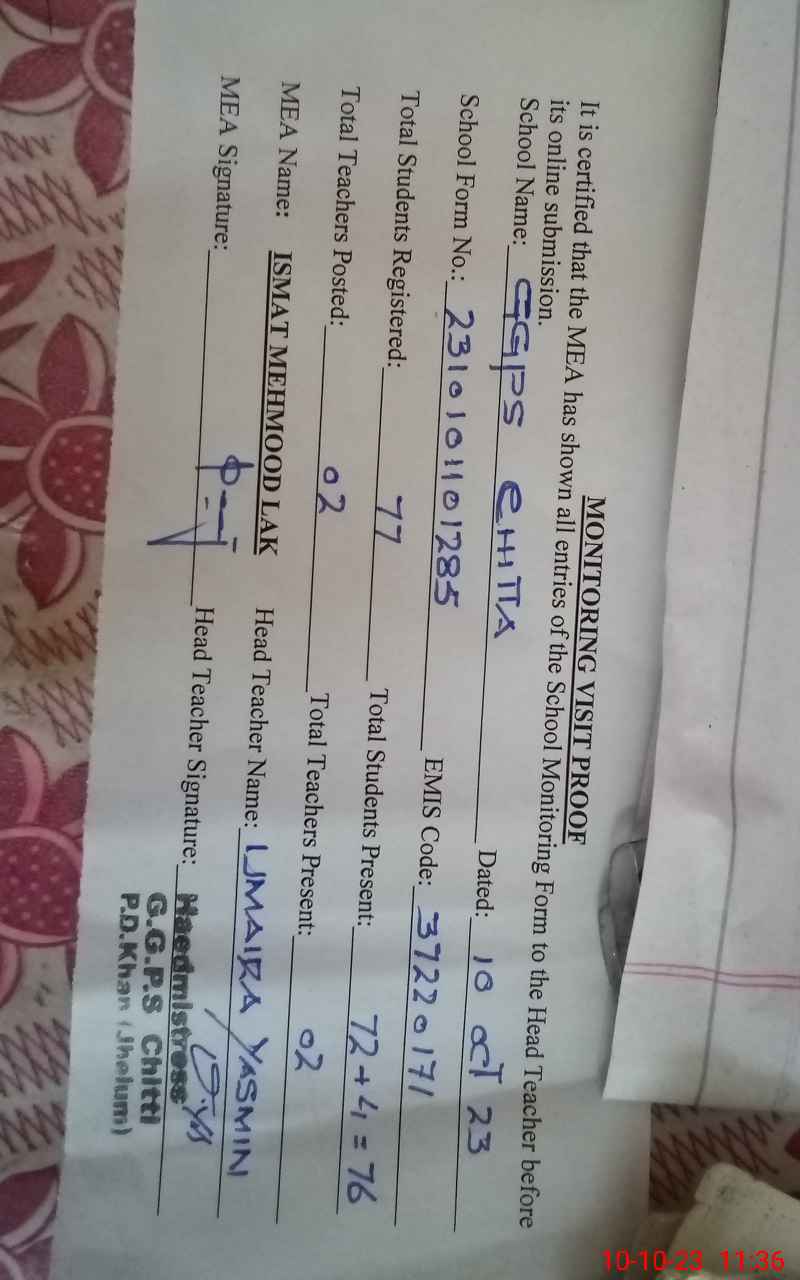 MONITORING VISIT PROOF
It is certified that the MEA has shown all entries of the School Monitoring Form to the Head Teacher before
its online submission.
School Name: GGPS CHITTA Dated: 10 OCT 23
School Form No.: 231010110 1285 EMIS Code: 37220171
Total Students Registered: 77 Total Students Present: 72+4=76
Total Teachers Posted: 02 Total Teachers Present: 02
MEA Name: ISMAT MEHMOOD LAK Head Teacher Name: UMAIRA YASMIN
MEA Signature: Head Teacher Signature:
Haedmistress
G.G.P.S Chitti
P.D.Khan (Jhelum)
10-10-23 11:36